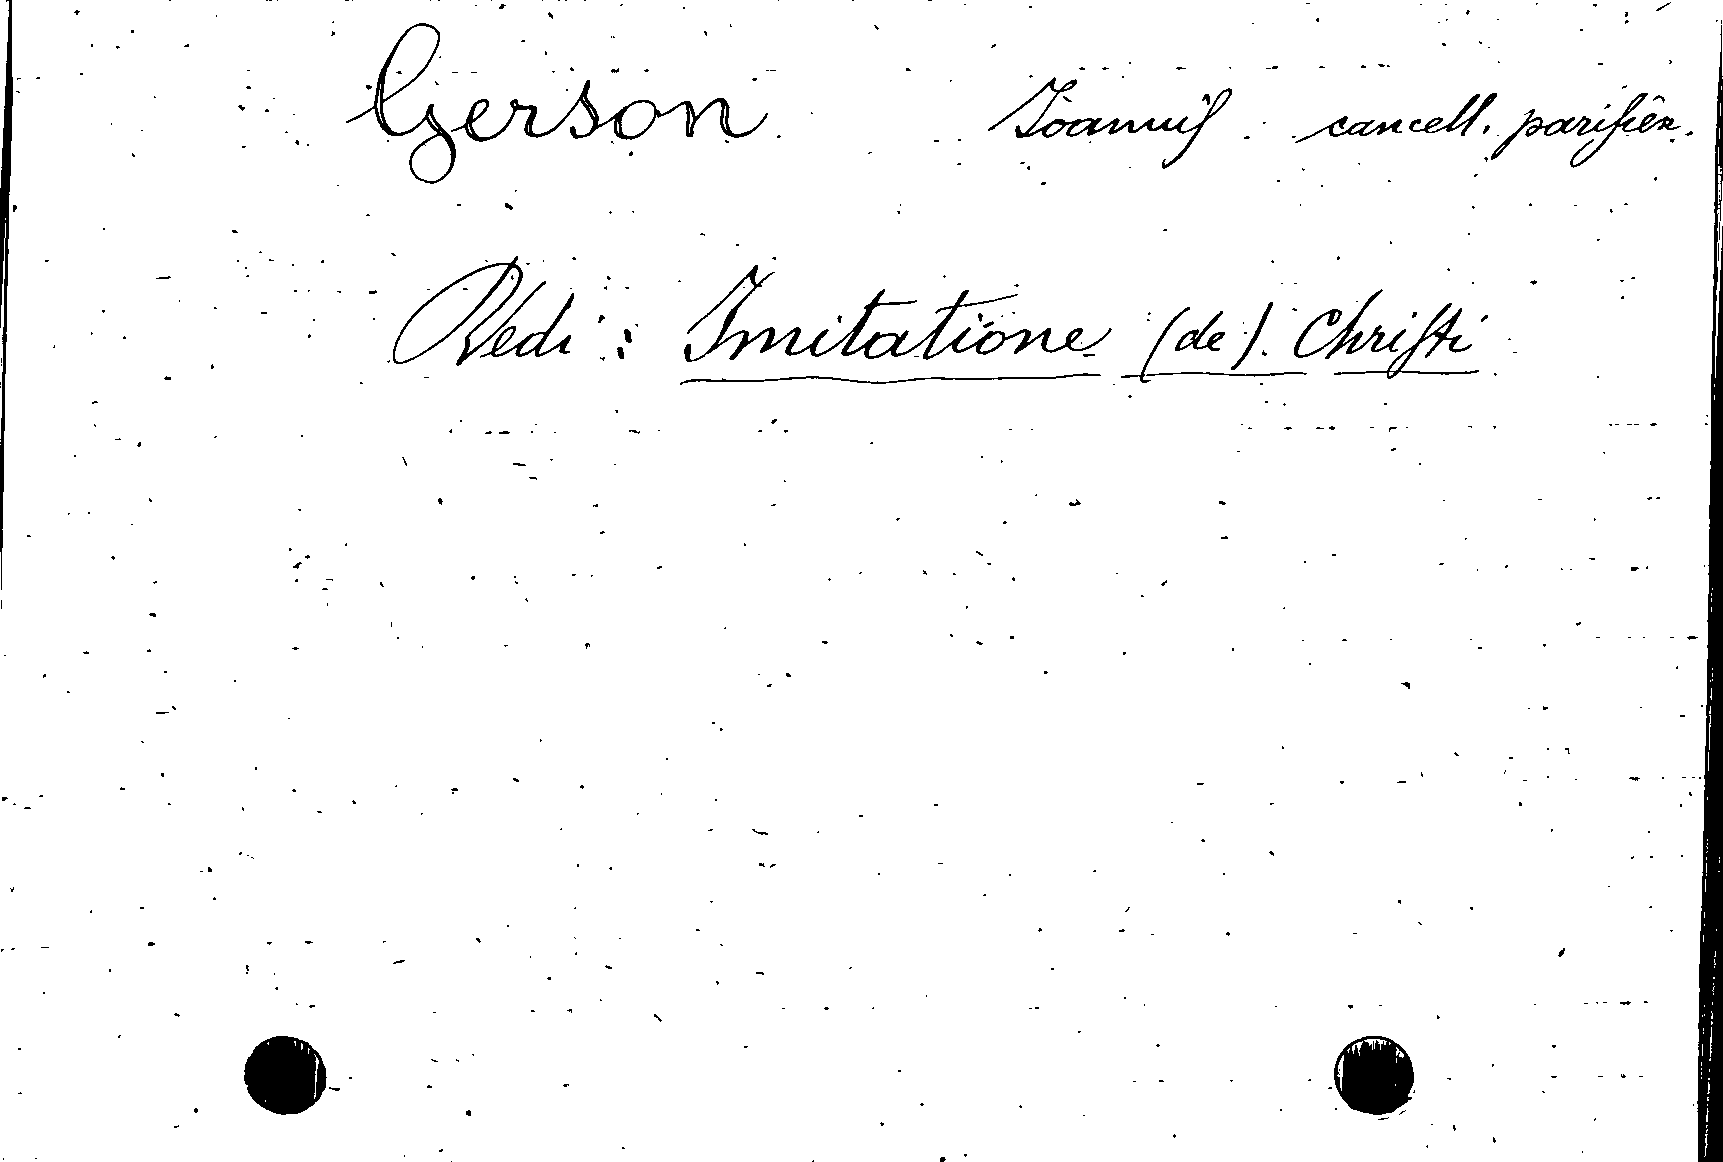 Gerson Joannis cancell. parisien.
Vedi: Imitatione (de) Christi